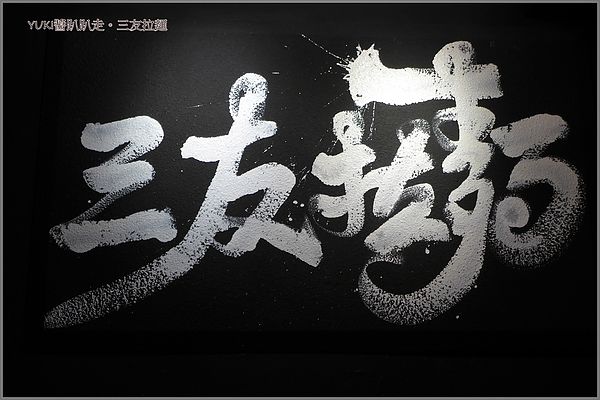 YUKI醬趴趴走‧三友拉麵
三友拉麵